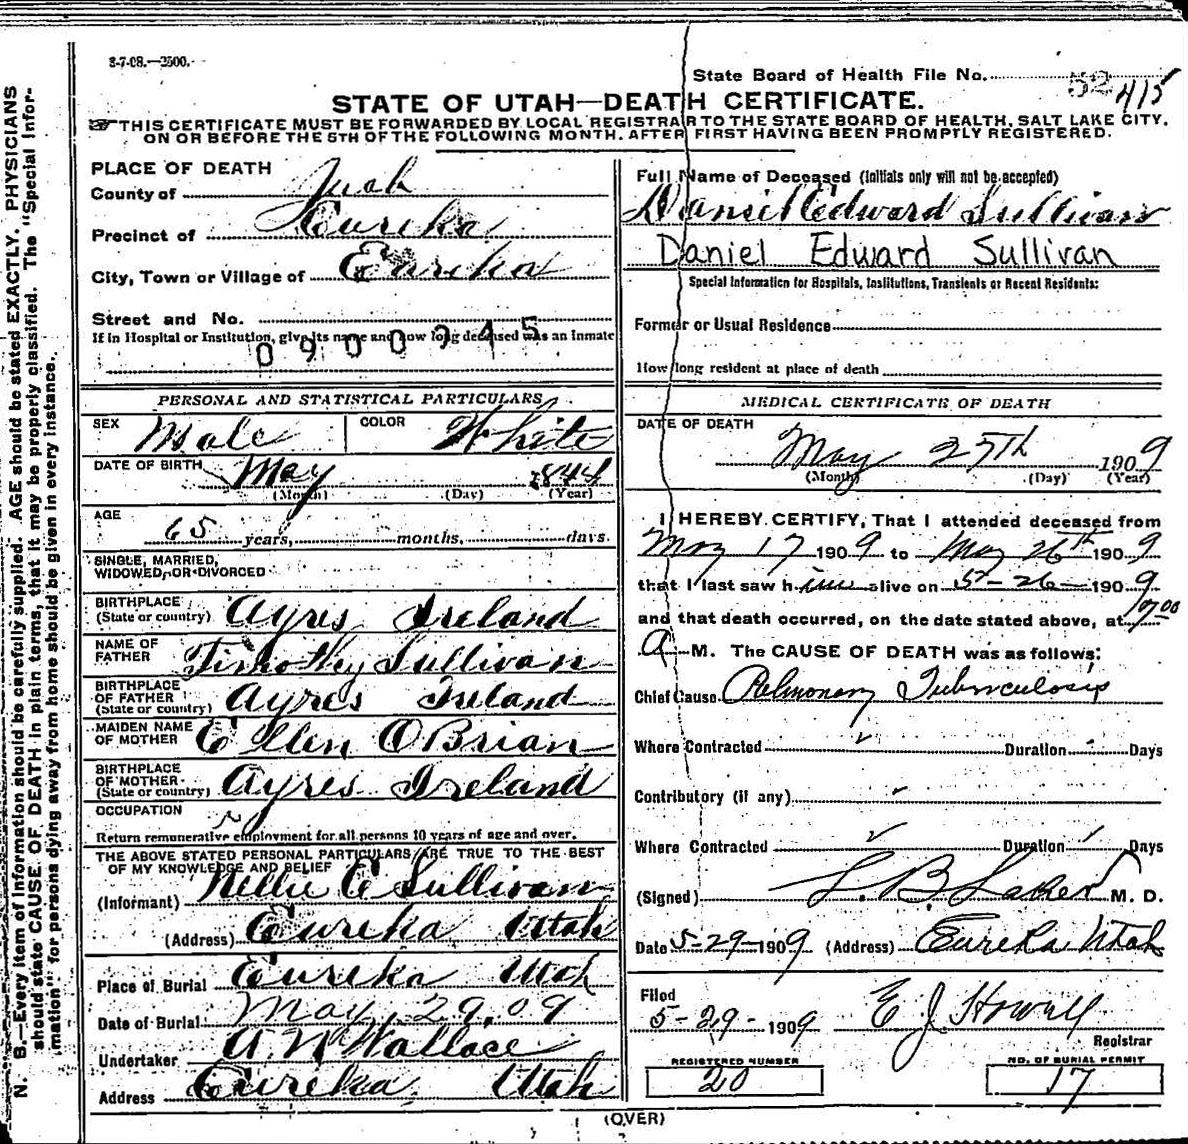 8-7-08.—2500.
State Board of Health File No. 52 415
STATE OF UTAH—DEATH CERTIFICATE.
☞THIS CERTIFICATE MUST BE FORWARDED BY LOCAL REGISTRAR TO THE STATE BOARD OF HEALTH, SALT LAKE CITY,
ON OR BEFORE THE 5TH OF THE FOLLOWING MONTH, AFTER FIRST HAVING BEEN PROMPTLY REGISTERED.
PLACE OF DEATH
County of Juab
Precinct of Eureka
City, Town or Village of Eureka
Street and No.
If in Hospital or Institution, give its name and how long deceased was an inmate
0900345
Full Name of Deceased (Initials only will not be accepted)
Daniel Edward Sullivan
Daniel Edward Sullivan
Special Information for Hospitals, Institutions, Transients or Recent Residents:
Former or Usual Residence
How long resident at place of death
PERSONAL AND STATISTICAL PARTICULARS
SEX Male COLOR White
DATE OF BIRTH May 1844
(Month) (Day) (Year)
AGE
65 years, months, days.
SINGLE, MARRIED,
WIDOWED, OR DIVORCED
BIRTHPLACE
(State or country) Ayres Ireland
NAME OF
FATHER Timothy Sullivan
BIRTHPLACE
OF FATHER
(State or country) Ayres Ireland
MAIDEN NAME
OF MOTHER Ellen OBrian
BIRTHPLACE
OF MOTHER
(State or country) Ayres Ireland
OCCUPATION
Return remunerative employment for all persons 10 years of age and over.
THE ABOVE STATED PERSONAL PARTICULARS ARE TRUE TO THE BEST
OF MY KNOWLEDGE AND BELIEF
(Informant) Nellie E Sullivan
(Address) Eureka Utah
Place of Burial Eureka Utah
Date of Burial May. 29. 09
Undertaker A N Wallace
Address Eureka, Utah
MEDICAL CERTIFICATE OF DEATH
DATE OF DEATH
May 27th 1909
(Month) (Day) (Year)
I HEREBY CERTIFY, That I attended deceased from
May 17 1909 to May 26th 1909
that I last saw him alive on 5-26- 1909
and that death occurred, on the date stated above, at
A M. The CAUSE OF DEATH was as follows:
Chief Cause Pulmonary Tuberculosis
Where Contracted Duration Days
Contributory (if any)
Where Contracted Duration Days
(Signed) M. D.
Date 5-29-1909 (Address) Eureka Utah
Filed
5-29-1909 E J Howell
Registrar
REGISTERED NUMBER
20
NO. OF BURIAL PERMIT
17
(OVER)
N. B.—Every item of information should be carefully supplied. AGE should be stated EXACTLY. PHYSICIANS
should state CAUSE OF DEATH in plain terms, that it may be properly classified. The "Special Infor-
mation" for persons dying away from home should be given in every instance.